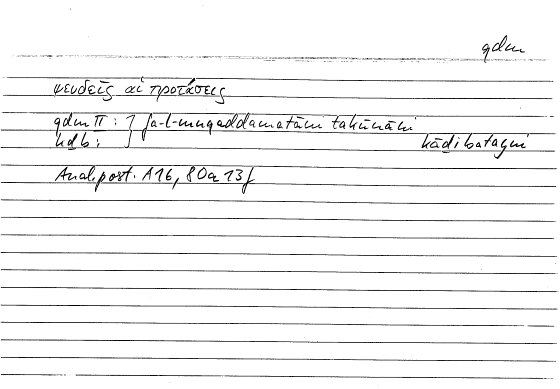 qdm
ψευδεῖς αἱ προτάσεις
qdm II : } fa-l-muqaddamatāni takūnāni
kḏb : kāḏibatayni
Anal. post. A 16, 80a 13f